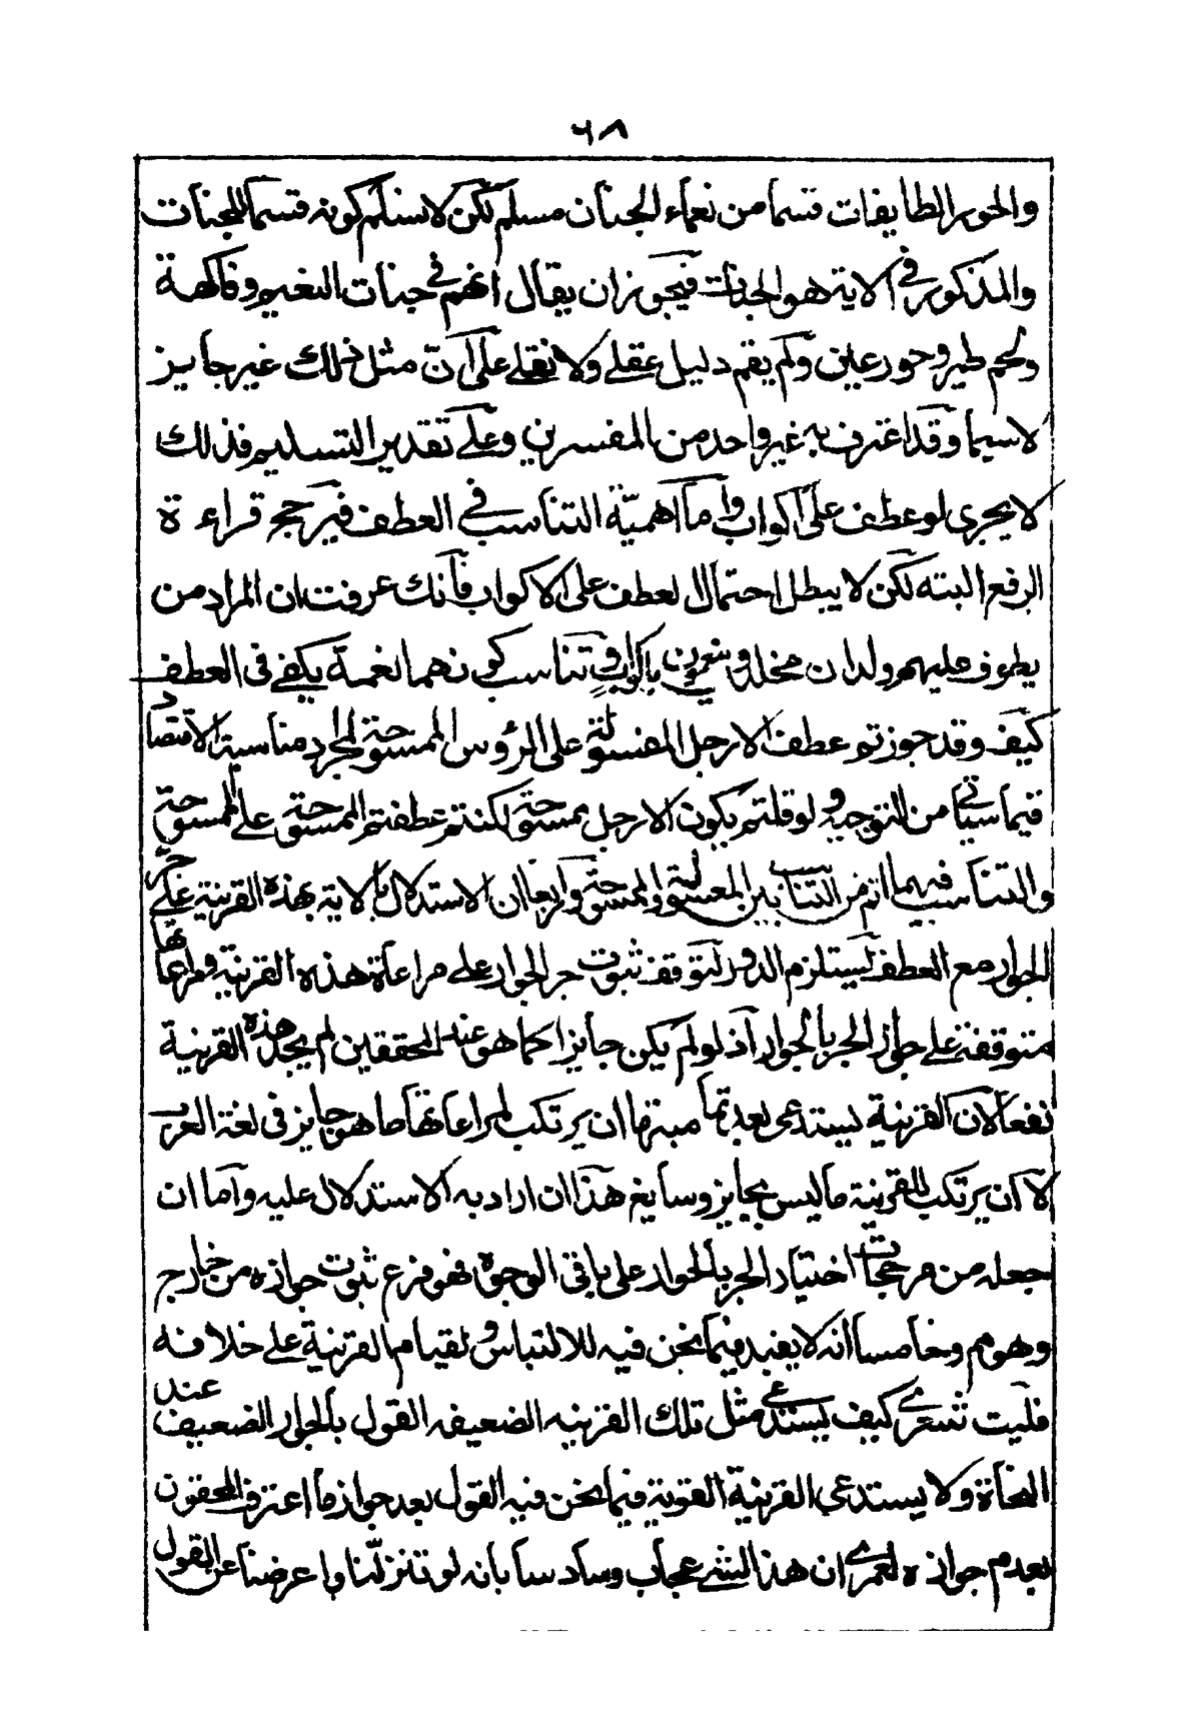 ٦٨
والحور الطايفات قسما من نعماء الجنان مسلم لكن لا نسلم كونه قسما للجنات
والمذكور في الاية هو الجنات فيجوز ان يقال انهم في جنات النعيم وفاكهة
ولحم طير وحور عين ولم يقم دليل عقلي ولا نقلي على ان مثل ذلك غير جايز
لا سيما وقد اعترف به غير واحد من المفسرين وعلى تقدير التسليم فذلك
لا يجرى لو عطف على اكواب واما اهمية التناسب في العطف فيرجح قراءة
الرفع البته لكن لا يبطل احتمال العطف على الاكواب فانك عرفت ان المراد من
يطوف عليهم ولدان مخلدون ينعمون باكواب وتناسب كونهما نعمة يكفي في العطف
كيف وقد جوزتم عطف الارجل المغسولة على الرؤس الممسوحة لمجرد مناسبة الاقتصاد
فيما سياتي من التوجيه ولو قلتم بكون الارجل ممسوحة لكنتم عطفتم الممسوحة على الممسوحة
والتناسب فيهما اتم من التناسب بين المغسولة والممسوحة ورابعا ان الاستدلال بالاية بهذه القرينة على جر
الجوار مع العطف يستلزم الدور لتوقف ثبوت جر الجوار على مراعاة هذه القرينة ومراعاتها
متوقفة على جواز الجر بالجوار اذ لو لم يكن جايزا كما هو عند المحققين لم يجد هذه القرينة
نفعا لان القرينة يستدعى بعد تمامبتها ان يرتكب لمراعاتها ما هو جايز في لغة العرب
لا ان يرتكب للقرينة ما ليس بجايز وسايغ هذا ان اراد به الاستدلال عليه واما ان
جعله من مرجحات اختيار الجر بالجوار على باقى الوجوه فهو فرع ثبوت جوازه من خارج
وهو مم وخامسا انه لا يفيد فيما نحن فيه للالتباس ولقيام القرينة على خلافه
فليت شعرى كيف يستدعى مثل تلك القرينه الضعيفه القول بالجوار الضعيف عند
النحاة ولا يستدعى القرينة القوية فيما نحن فيه القول بعد جواز ما اعترف المحققون
بعدم جوازه لعمرى ان هذا لشيء عجاب وسادسا بانه لو تنزلنا واعرضنا عن القول